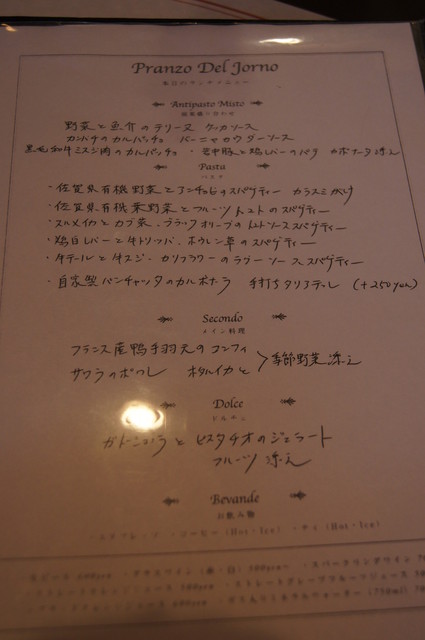 Pranzo Del Jorno
本日のランチメニュー
Antipasto Misto
前菜盛り合わせ
野菜と魚介のテリーヌ クッカソース
カンパチのカルパッチョ バーニャカウダーソース
黒毛和牛ミスジ肉のカルパッチョ ・ 岩中豚と鶏レバーのパテ カポナータ添え
Pasta
パスタ
・佐賀県有機野菜とアンチョビのスパゲティー カラスミがけ
・佐賀県有機葉野菜とフルーツトマトのスパゲティー
・スルメイカとカブ菜・ブラックオリーブのトマトソーススパゲティー
・鶏白レバーと牛トリッパ・ホウレン草のスパゲティー
・牛テールと牛スジ・カリフラワーのラグーソース スパゲティー
・自家製パンチェッタのカルボナーラ 手打ちタリアテッレ (+250yen)
Secondo
メイン料理
フランス産鴨手羽元のコンフィ
サワラのポワレ ホタルイカと > 季節野菜添え
Dolce
ドルチェ
ガトーショコラとピスタチオのジェラート
フルーツ添え
Bevande
お飲み物
・エスプレッソ ・コーヒー (Hot・Ice) ・ティ (Hot・Ice)